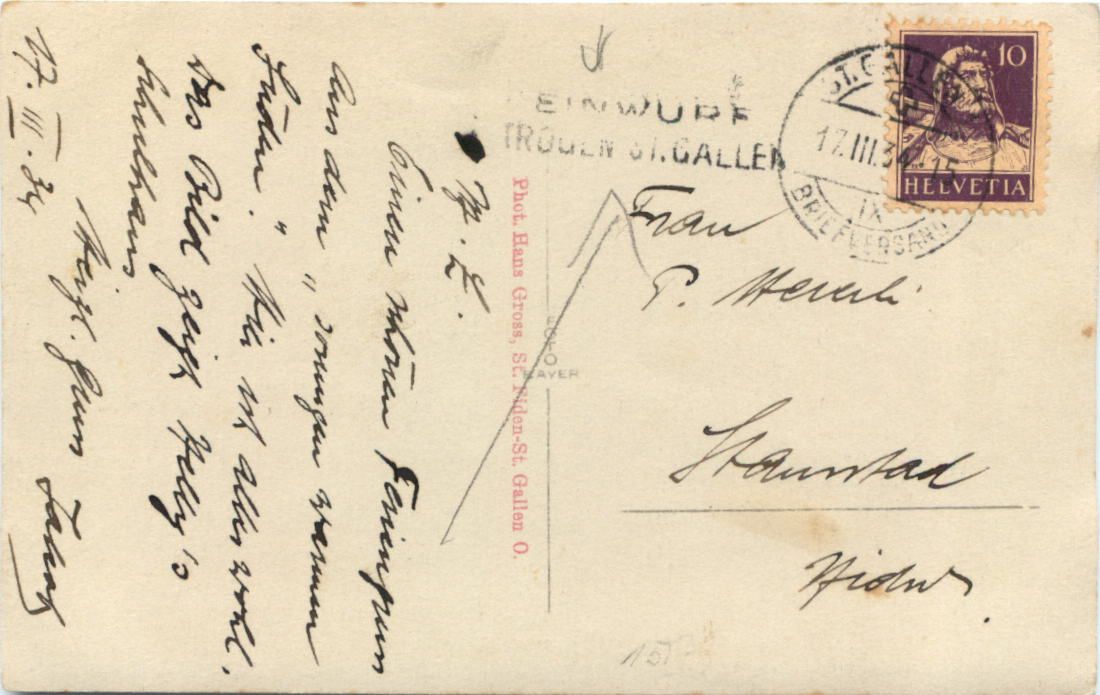 M. L.
Einen schönen Feriengruss
aus dem „ sonnigen warmen
Süden." Hier ist alles wohl.
Das Bild zeigt Nelly's
Schulhaus
Herzl. Gruss
17. III. 34
Phot. Hans Gross, St. Fiden-St. Gallen O.
FOTO
BAYER
EINWURF
TROGEN ST. GALLEN
ST. GALLEN
17.III.34. 15
IX
BRIEFVERSAND
10
HELVETIA
Frau
P.
Stansstad
Nidw.